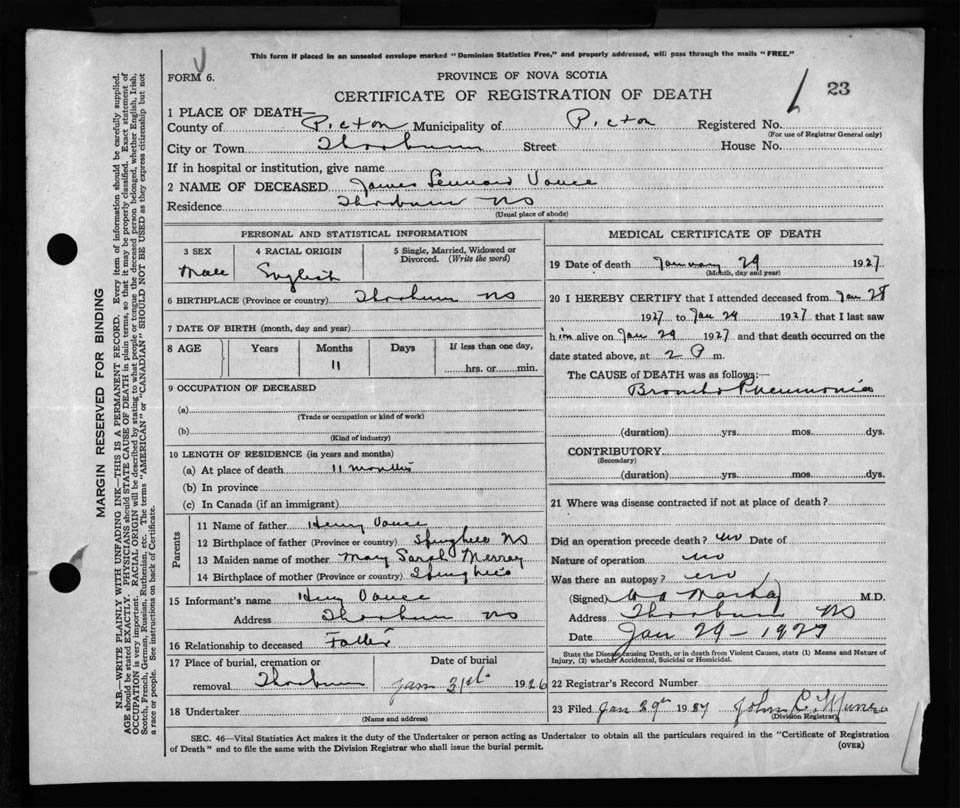 This form if placed in an unsealed envelope marked "Dominion Statistics Free," and properly addressed, will pass through the mails "FREE."
FORM 6.
PROVINCE OF NOVA SCOTIA
CERTIFICATE OF REGISTRATION OF DEATH
23
1 PLACE OF DEATH—
County of Picton Municipality of Picton Registered No.
(For use of Registrar General only)
City or Town Thorburn Street House No.
If in hospital or institution, give name
2 NAME OF DECEASED James Lennard Vance
Residence Thorburn NS
(Usual place of abode)
PERSONAL AND STATISTICAL INFORMATION
3 SEX 4 RACIAL ORIGIN 5 Single, Married, Widowed or Divorced. (Write the word)
Male English
6 BIRTHPLACE (Province or country) Thorburn NS
7 DATE OF BIRTH (month, day and year)
8 AGE Years Months Days If less than one day,
11 hrs. or min.
9 OCCUPATION OF DECEASED
(a)
(Trade or occupation or kind of work)
(b)
(Kind of industry)
10 LENGTH OF RESIDENCE (in years and months)
(a) At place of death 11 months
(b) In province
(c) In Canada (if an immigrant)
Parents
11 Name of father Henry Vance
12 Birthplace of father (Province or country) NS
13 Maiden name of mother Mary Sarah
14 Birthplace of mother (Province or country)
15 Informant's name Henry Vance
Address Thorburn NS
16 Relationship to deceased Father
17 Place of burial, cremation or removal Thorburn
Date of burial
Jan 31st 1926
18 Undertaker
(Name and address)
MEDICAL CERTIFICATE OF DEATH
19 Date of death January 29 1927
(Month, day and year)
20 I HEREBY CERTIFY that I attended deceased from Jan 28
1927 to Jan 29 1927 that I last saw
him alive on Jan 29 1927 and that death occurred on the
date stated above, at 2 P m.
The CAUSE of DEATH was as follows:—
Broncho Pneumonia
(duration) yrs. mos. dys.
CONTRIBUTORY
(Secondary)
(duration) yrs. mos. dys.
21 Where was disease contracted if not at place of death?
Did an operation precede death? no Date of
Nature of operation no
Was there an autopsy? no
(Signed) M.D.
Address Thorburn NS
Date Jan 29–1927
State the Disease causing Death, or in death from Violent Causes, state (1) Means and Nature of
Injury, (2) whether Accidental, Suicidal or Homicidal.
22 Registrar's Record Number
23 Filed Jan 29th 1927 John C. Munro
(Division Registrar)
SEC. 46—Vital Statistics Act makes it the duty of the Undertaker or person acting as Undertaker to obtain all the particulars required in the "Certificate of Registration
of Death" and to file the same with the Division Registrar who shall issue the burial permit.
(OVER)
MARGIN RESERVED FOR BINDING
N.B.—WRITE PLAINLY WITH UNFADING INK—THIS IS A PERMANENT RECORD. Every item of information should be carefully supplied.
AGE should be stated EXACTLY. PHYSICIANS should STATE CAUSE OF DEATH in plain terms, so that it may be properly classified. Exact statement of
OCCUPATION is very important. RACIAL ORIGIN will be described by stating to what people or tongue the deceased person belonged, whether English, Irish,
Scotch, French, German, Russian, Ruthenian, etc. The terms "AMERICAN" or "CANADIAN" SHOULD NOT BE USED as they express citizenship but not
a race or people. See instructions on back of Certificate.